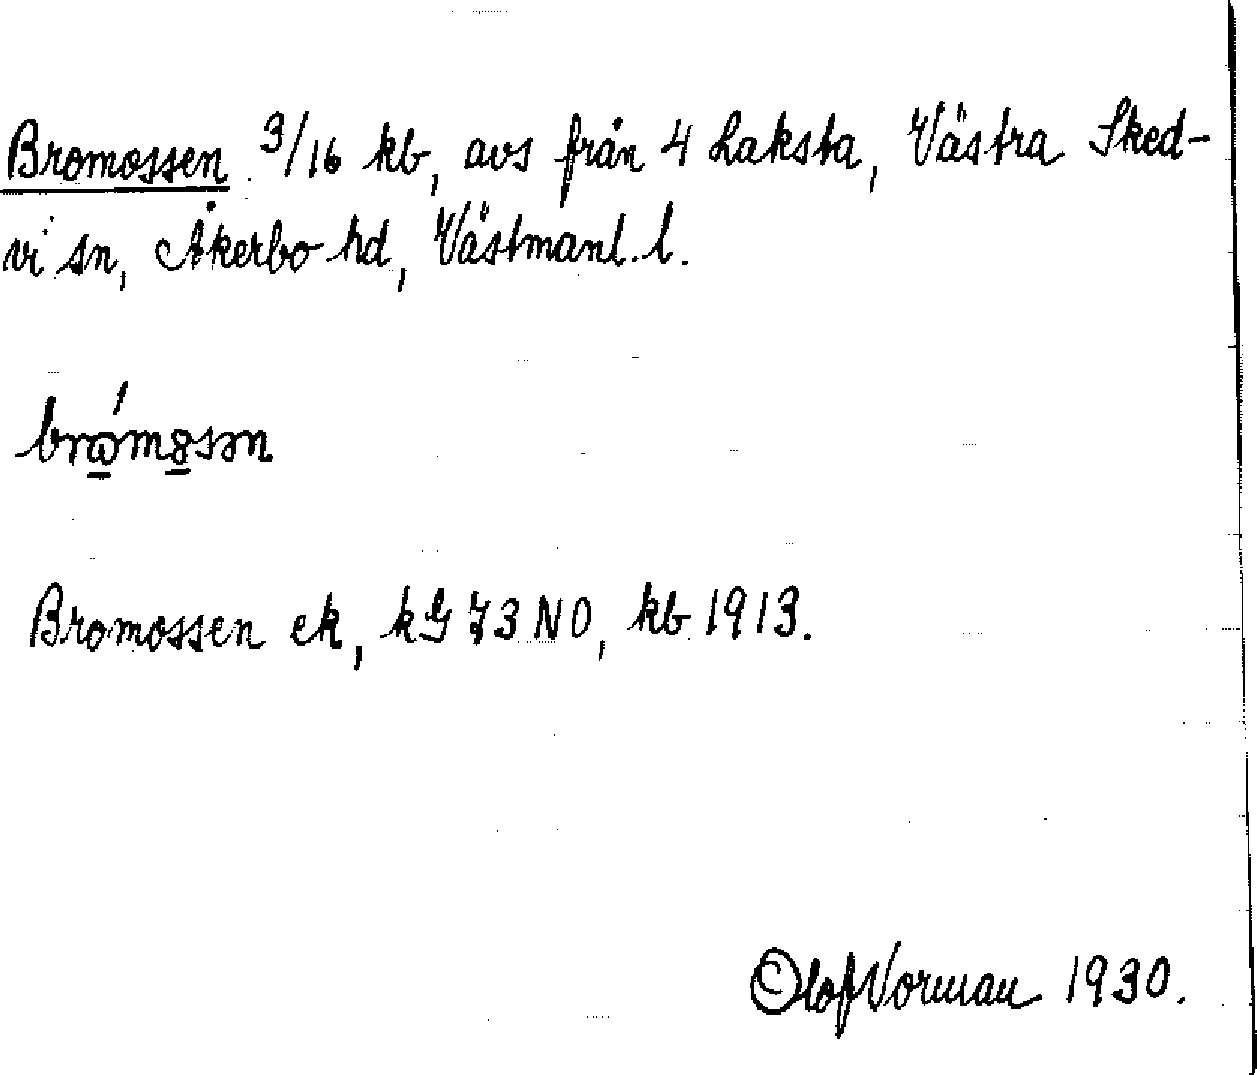 Bromossen 3/16 kb, avs från 4 Laksta, Västra Sked-
vi sn, Åkerbo hd, Västmanl. l.
Bromossen ek, kG 73 NO, kb 1913.
Olof Vorman 1930.